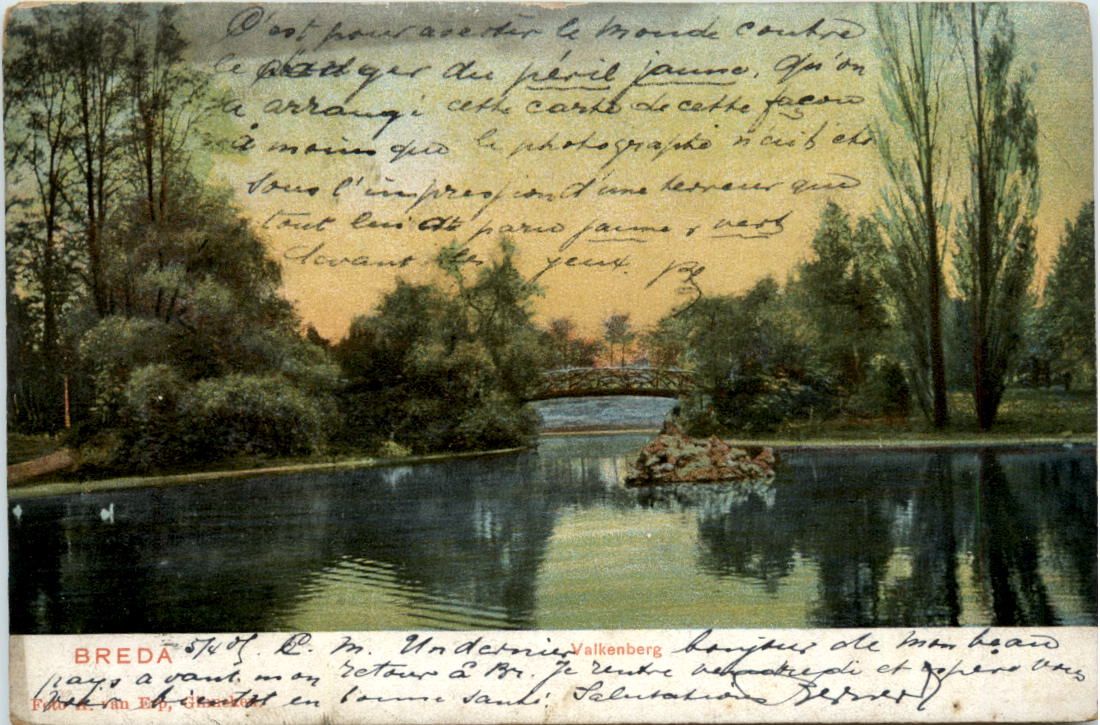 C'est pour avertir le monde contre
le danger du péril jaune, qu'on
a arrangé cette carte de cette façon
à moins que le photographe n'ait été
sous l'impression d'une terreur que
tout lui ait paru jaune & vert
devant les yeux.
BREDA 5/4 05. C. M. Un dernier Valkenberg bonjour de mon beau
pays avant mon retour à Br. Je rentre vendredi et espère vous
Foto H. van Erp, Ginneken.
voir bientôt en bonne santé. Salutations